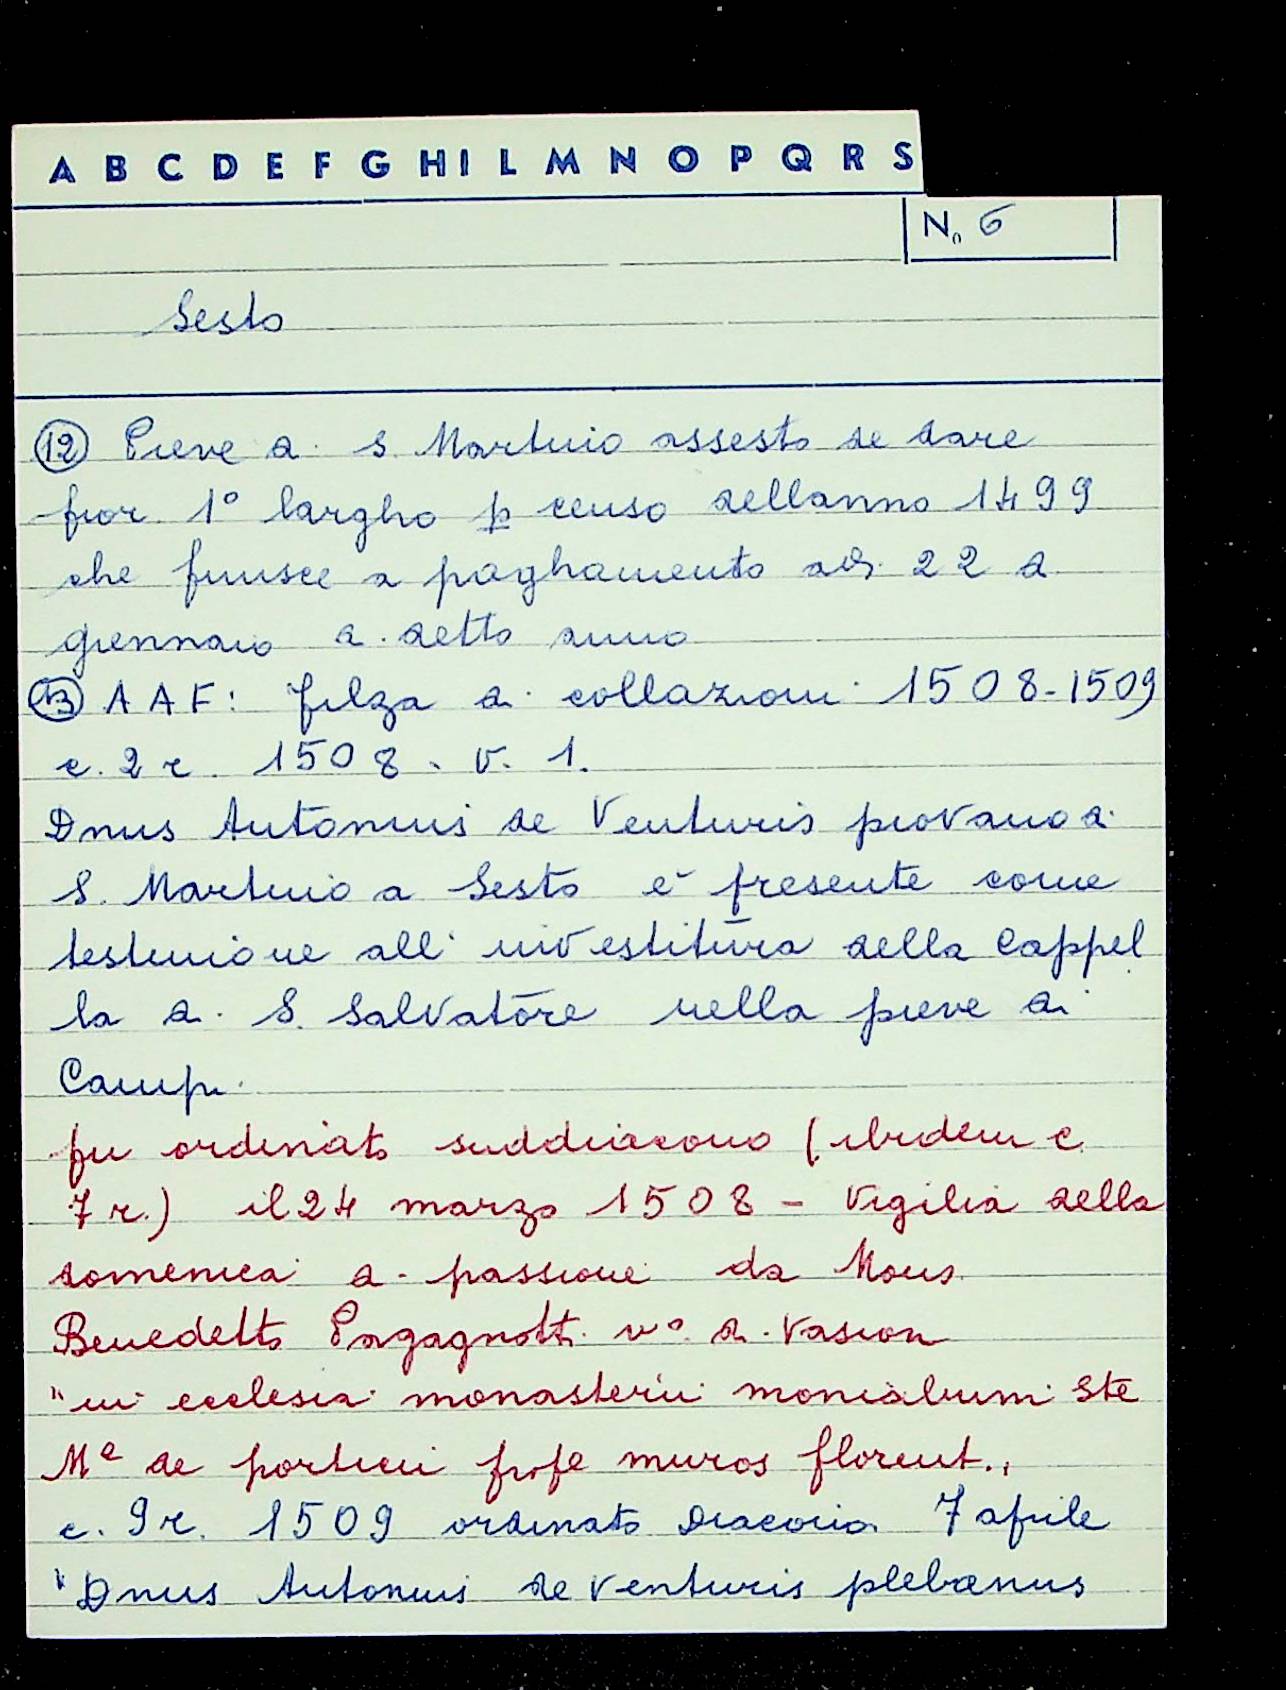 A B C D E F G H I L M N O P Q R S
N. 6
Sesto
(12) Pieve di S. Martino assesto de dare
fior. 1° largho p censo dellanno 1499
che finisce a paghamento adì 22 di
giennaio di detto anno
(13) AAF: filza di collazioni 1508-1509
c. 2 r. 1508. V. 1.
Dnus Antonius de Venturis piovano di
S. Martino a Sesto è presente come
testimone all' investitura della Cappel
la di S. Salvatore nella pieve di
Campi.
fu ordinato suddiacono (ibidem c.
7 r.) il 24 marzo 1508 - Vigilia della
domenica di passione da Mons.
Benedetto Pagagnotti v° di Vasion
"in ecclesia monasterii monialium Ste
Mª de porticu prope muros florent.,
c. 9 r. 1509 ordinato Diacono 7 aprile
"Dnus Antonius de Venturis plebanus